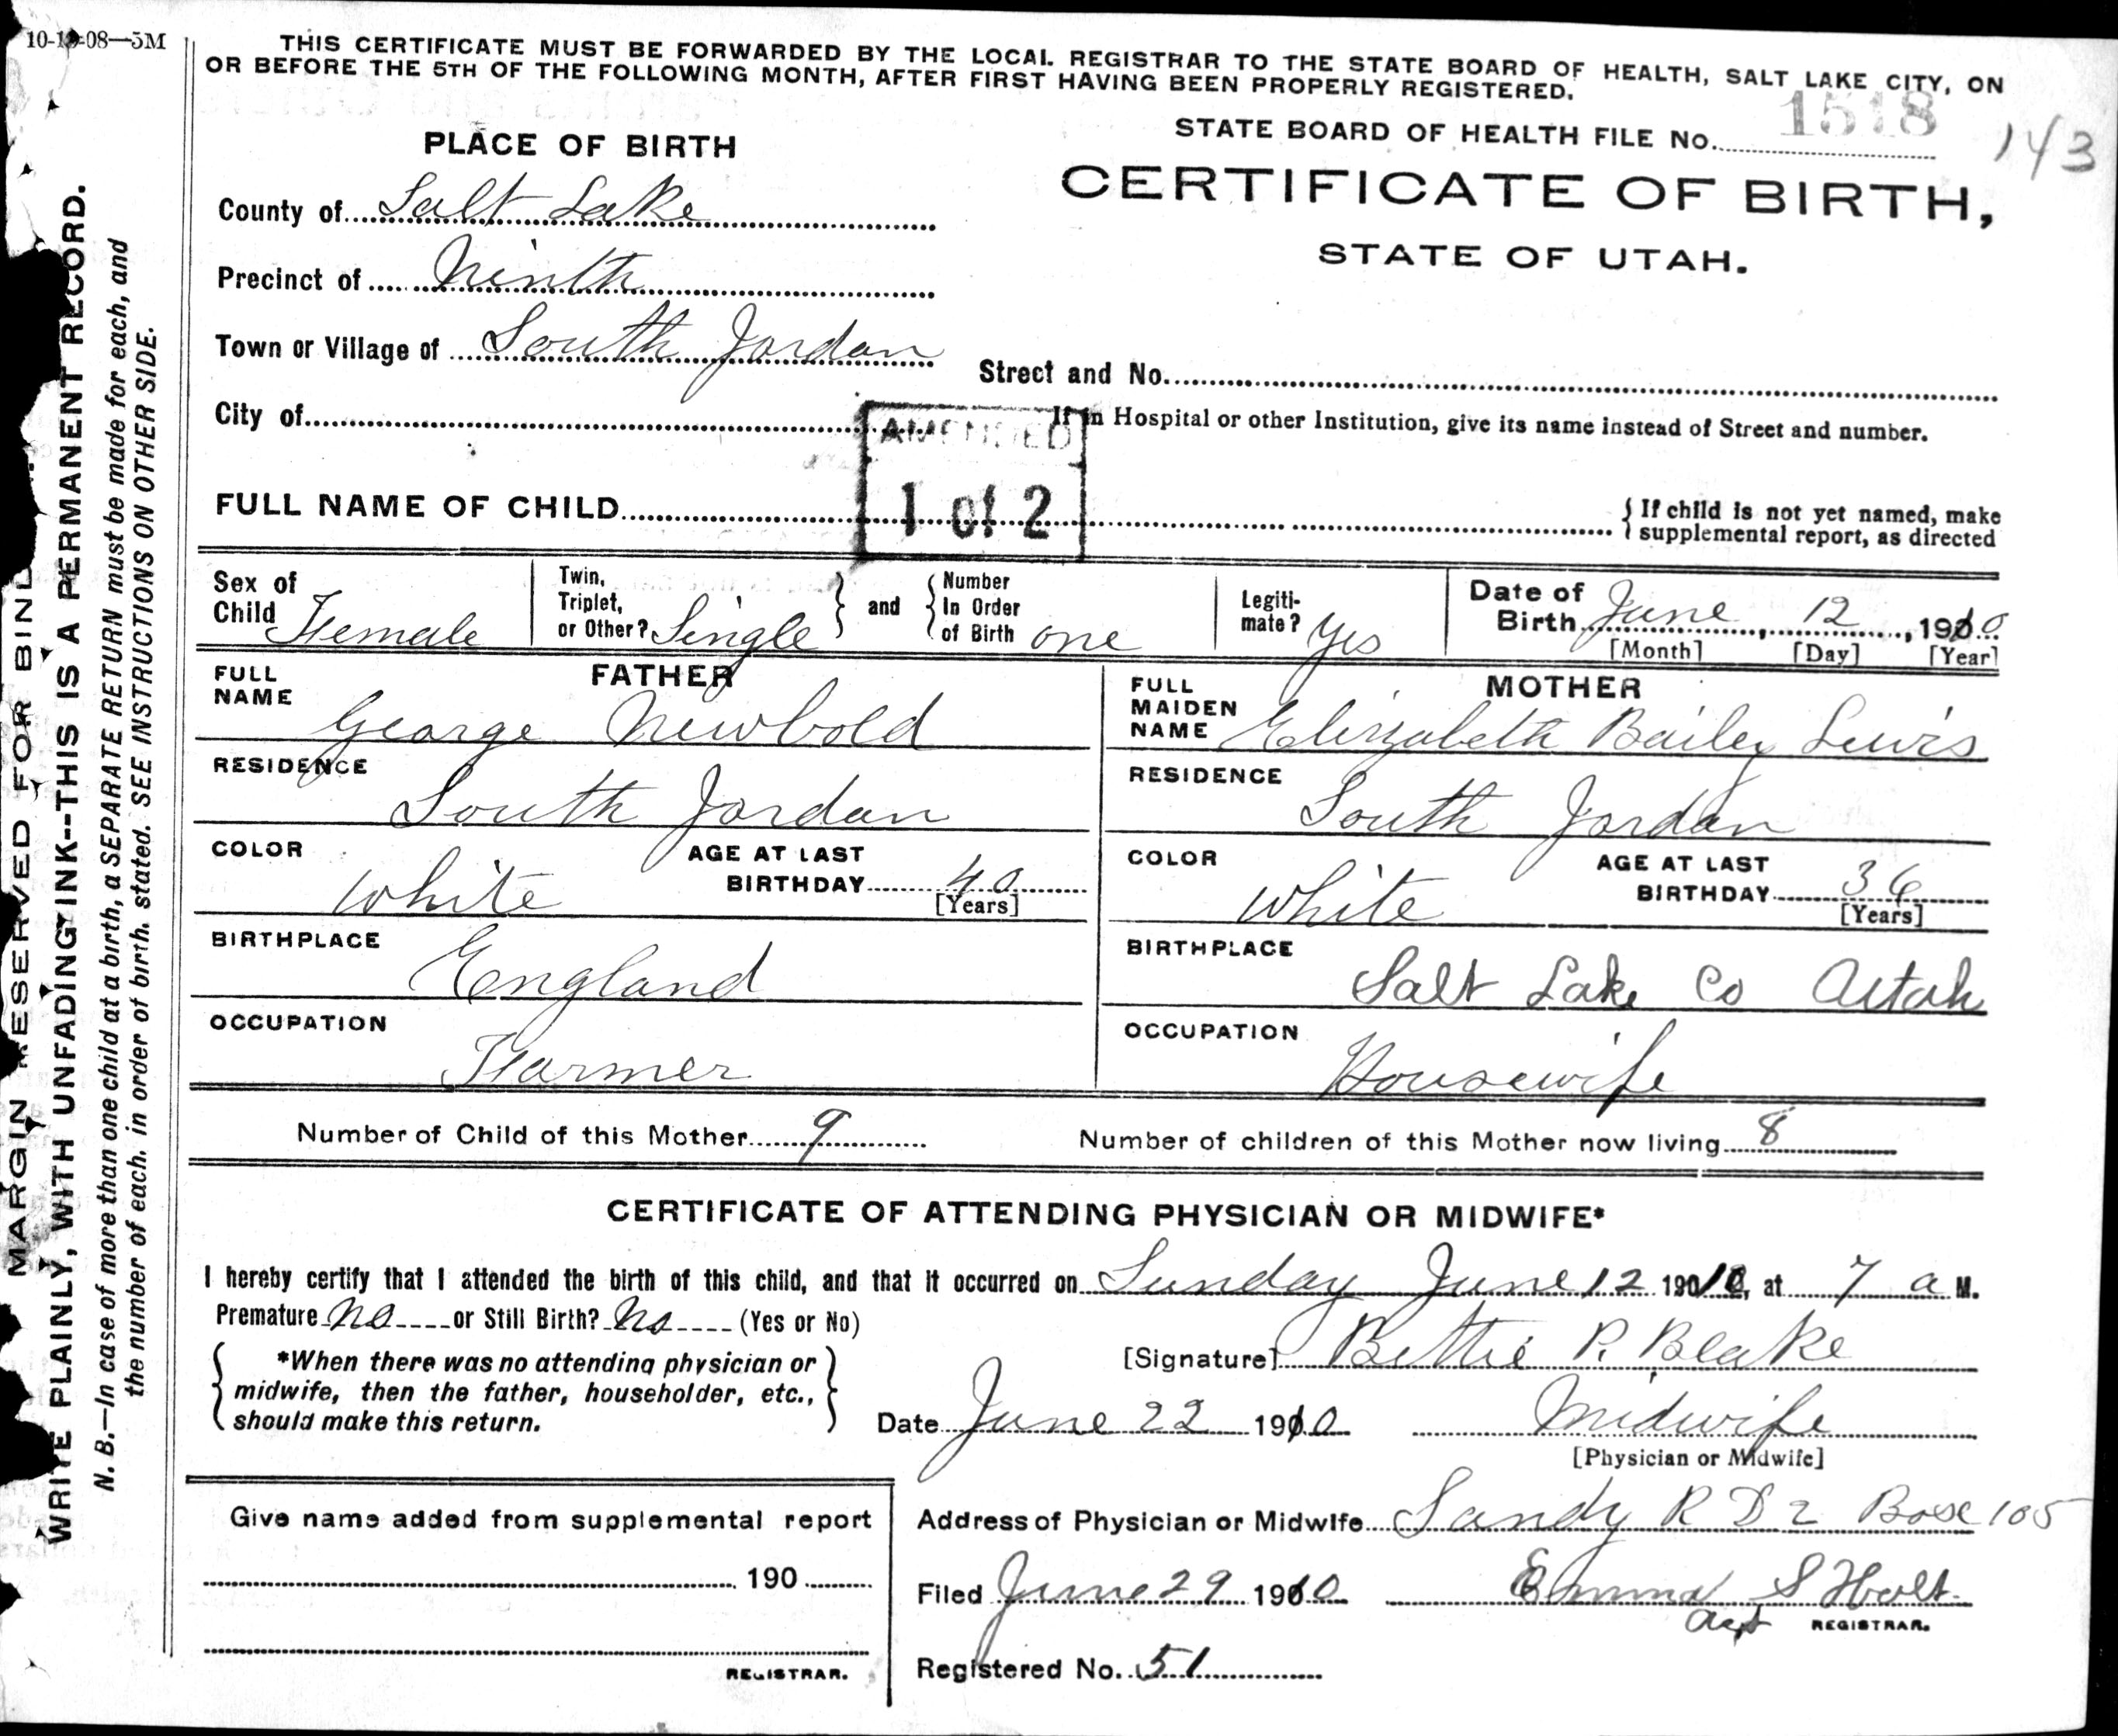 10-19-08—5M
THIS CERTIFICATE MUST BE FORWARDED BY THE LOCAL REGISTRAR TO THE STATE BOARD OF HEALTH, SALT LAKE CITY, ON
OR BEFORE THE 5TH OF THE FOLLOWING MONTH, AFTER FIRST HAVING BEEN PROPERLY REGISTERED.
STATE BOARD OF HEALTH FILE No. 1518 143
PLACE OF BIRTH
CERTIFICATE OF BIRTH,
STATE OF UTAH.
County of Salt Lake
Precinct of Ninth
Town or Village of South Jordan
Street and No.
City of
If in Hospital or other Institution, give its name instead of Street and number.
AMENDED
1 of 2
FULL NAME OF CHILD
{ If child is not yet named, make
supplemental report, as directed
Sex of Child Female
Twin, Triplet, or Other? Single } and { Number In Order of Birth one
Legiti-mate? Yes
Date of Birth June, 12, 1910
[Month] [Day] [Year]
FATHER
FULL NAME George Newbold
RESIDENCE South Jordan
COLOR White AGE AT LAST BIRTHDAY 40
[Years]
BIRTHPLACE England
OCCUPATION Farmer
MOTHER
FULL MAIDEN NAME Elizabeth Bailey Lewis
RESIDENCE South Jordan
COLOR White AGE AT LAST BIRTHDAY 36
[Years]
BIRTHPLACE Salt Lake Co Utah
OCCUPATION Housewife
Number of Child of this Mother 9 Number of children of this Mother now living 8
CERTIFICATE OF ATTENDING PHYSICIAN OR MIDWIFE*
I hereby certify that I attended the birth of this child, and that it occurred on Sunday June 12 1910, at 7 a M.
Premature no or Still Birth? No (Yes or No)
{ *When there was no attending physician or
midwife, then the father, householder, etc.,
should make this return. }
[Signature] Bettie P. Blake
Date June 22 1910 Midwife
[Physician or Midwife]
Give name added from supplemental report
190
REGISTRAR.
Address of Physician or Midwife Sandy R D 2 Box 105
Filed June 29 1910 Emma S Holt
REGISTRAR.
Registered No. 51
MARGIN RESERVED FOR
WRITE PLAINLY, WITH UNFADING INK--THIS IS A PERMANENT RECORD.
N. B.—In case of more than one child at a birth, a SEPARATE RETURN must be made for each, and
the number of each, in order of birth, stated. SEE INSTRUCTIONS ON OTHER SIDE.